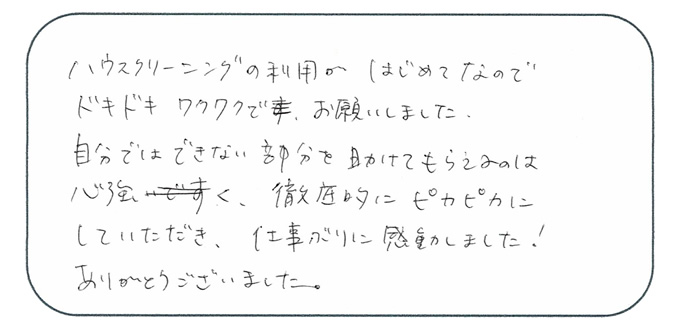 ハウスクリーニングの利用が はじめてなので
ドキドキ ワクワクで、お願いしました.
自分ではできない部分を助けてもらえるのは
心強く、徹底的に ピカピカに
していただき、仕事ぶりに感動しました!
ありがとうございました。